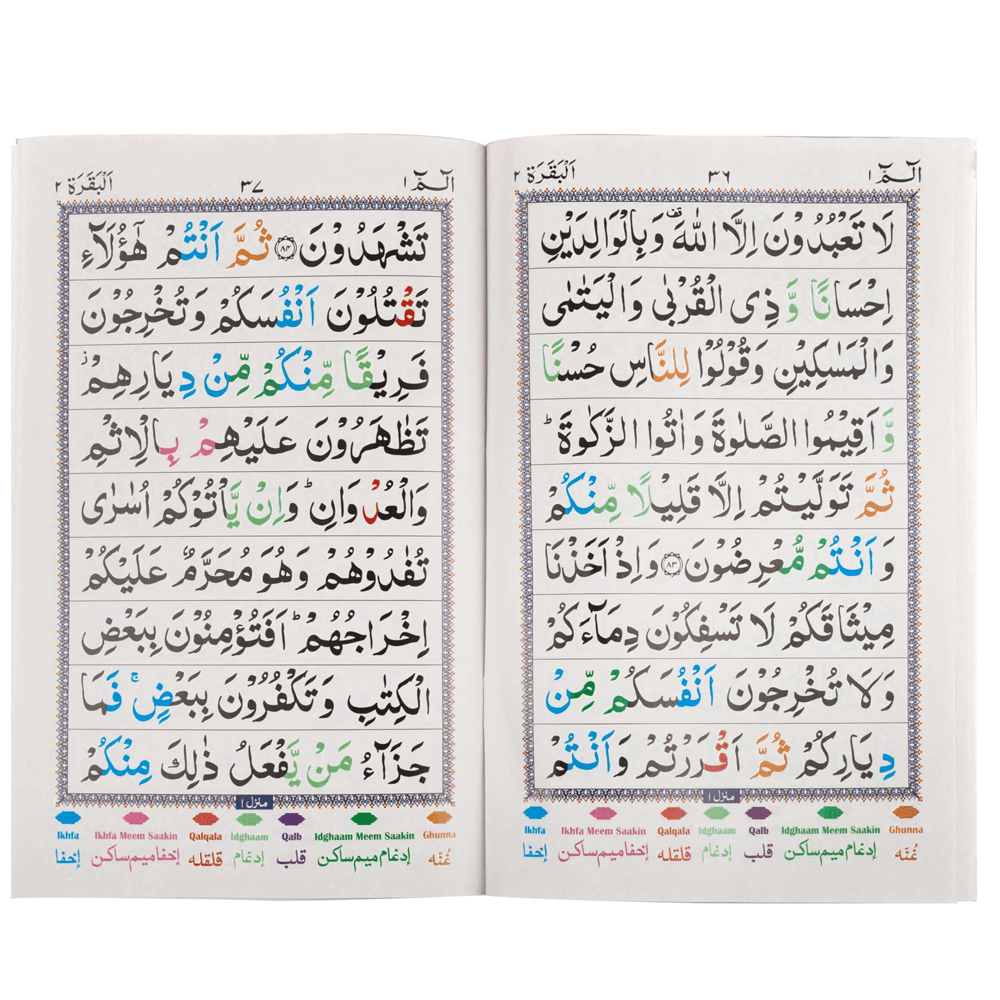 الٓمّٓ ١
٣٦
اَلْبَقَرَة ٢
لَا تَعْبُدُوْنَ اِلَّا اللّٰهَ ۫ وَبِالْوَالِدَيْنِ
اِحْسَانًا وَّ ذِی الْقُرْبٰی وَالْیَتٰمٰی
وَالْمَسٰكِیْنِ وَقُوْلُوْا لِلنَّاسِ حُسْنًا
وَّ اَقِیْمُوا الصَّلٰوةَ وَاٰتُوا الزَّكٰوةَ ؕ
ثُمَّ تَوَلَّیْتُمْ اِلَّا قَلِیْلًا مِّنْكُمْ
وَ اَنْتُمْ مُّعْرِضُوْنَ ۝٨٣ وَاِذْ اَخَذْنَا
مِیْثَاقَكُمْ لَا تَسْفِكُوْنَ دِمَآءَكُمْ
وَلَا تُخْرِجُوْنَ اَنْفُسَكُمْ مِّنْ
دِیَارِكُمْ ثُمَّ اَقْرَرْتُمْ وَاَنْتُمْ
منزل ١
Ikhfa Ikhfa Meem Saakin Qalqala Idghaam Qalb Idghaam Meem Saakin Ghunna
غُنّه إدغام ميم ساكن قلب إدغام قلقله إخفا ميم ساكن إخفا
الٓمّٓ ١
٣٧
اَلْبَقَرَة ٢
تَشْهَدُوْنَ ۝٨٤ ثُمَّ اَنْتُمْ هٰۤؤُلَآءِ
تَقْتُلُوْنَ اَنْفُسَكُمْ وَتُخْرِجُوْنَ
فَرِیْقًا مِّنْكُمْ مِّنْ دِیَارِهِمْ ؗ
تَظٰهَرُوْنَ عَلَیْهِمْ بِالْاِثْمِ
وَالْعُدْوَانِ ؕ وَاِنْ یَّاْتُوْكُمْ اُسٰرٰی
تُفٰدُوْهُمْ وَهُوَ مُحَرَّمٌ عَلَیْكُمْ
اِخْرَاجُهُمْ ؕ اَفَتُؤْمِنُوْنَ بِبَعْضِ
الْكِتٰبِ وَتَكْفُرُوْنَ بِبَعْضٍ ۚ فَمَا
جَزَآءُ مَنْ یَّفْعَلُ ذٰلِكَ مِنْكُمْ
منزل ١
Ikhfa Ikhfa Meem Saakin Qalqala Idghaam Qalb Idghaam Meem Saakin Ghunna
غُنّه إدغام ميم ساكن قلب إدغام قلقله إخفا ميم ساكن إخفا